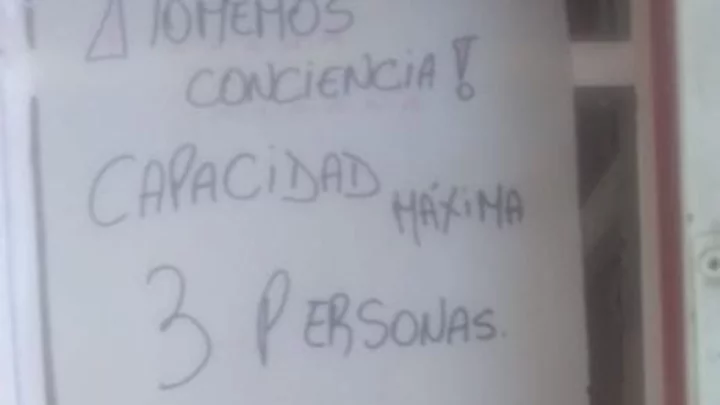 ¡TOMEMOS
CONCIENCIA!
CAPACIDAD MÁXIMA
3 PERSONAS.